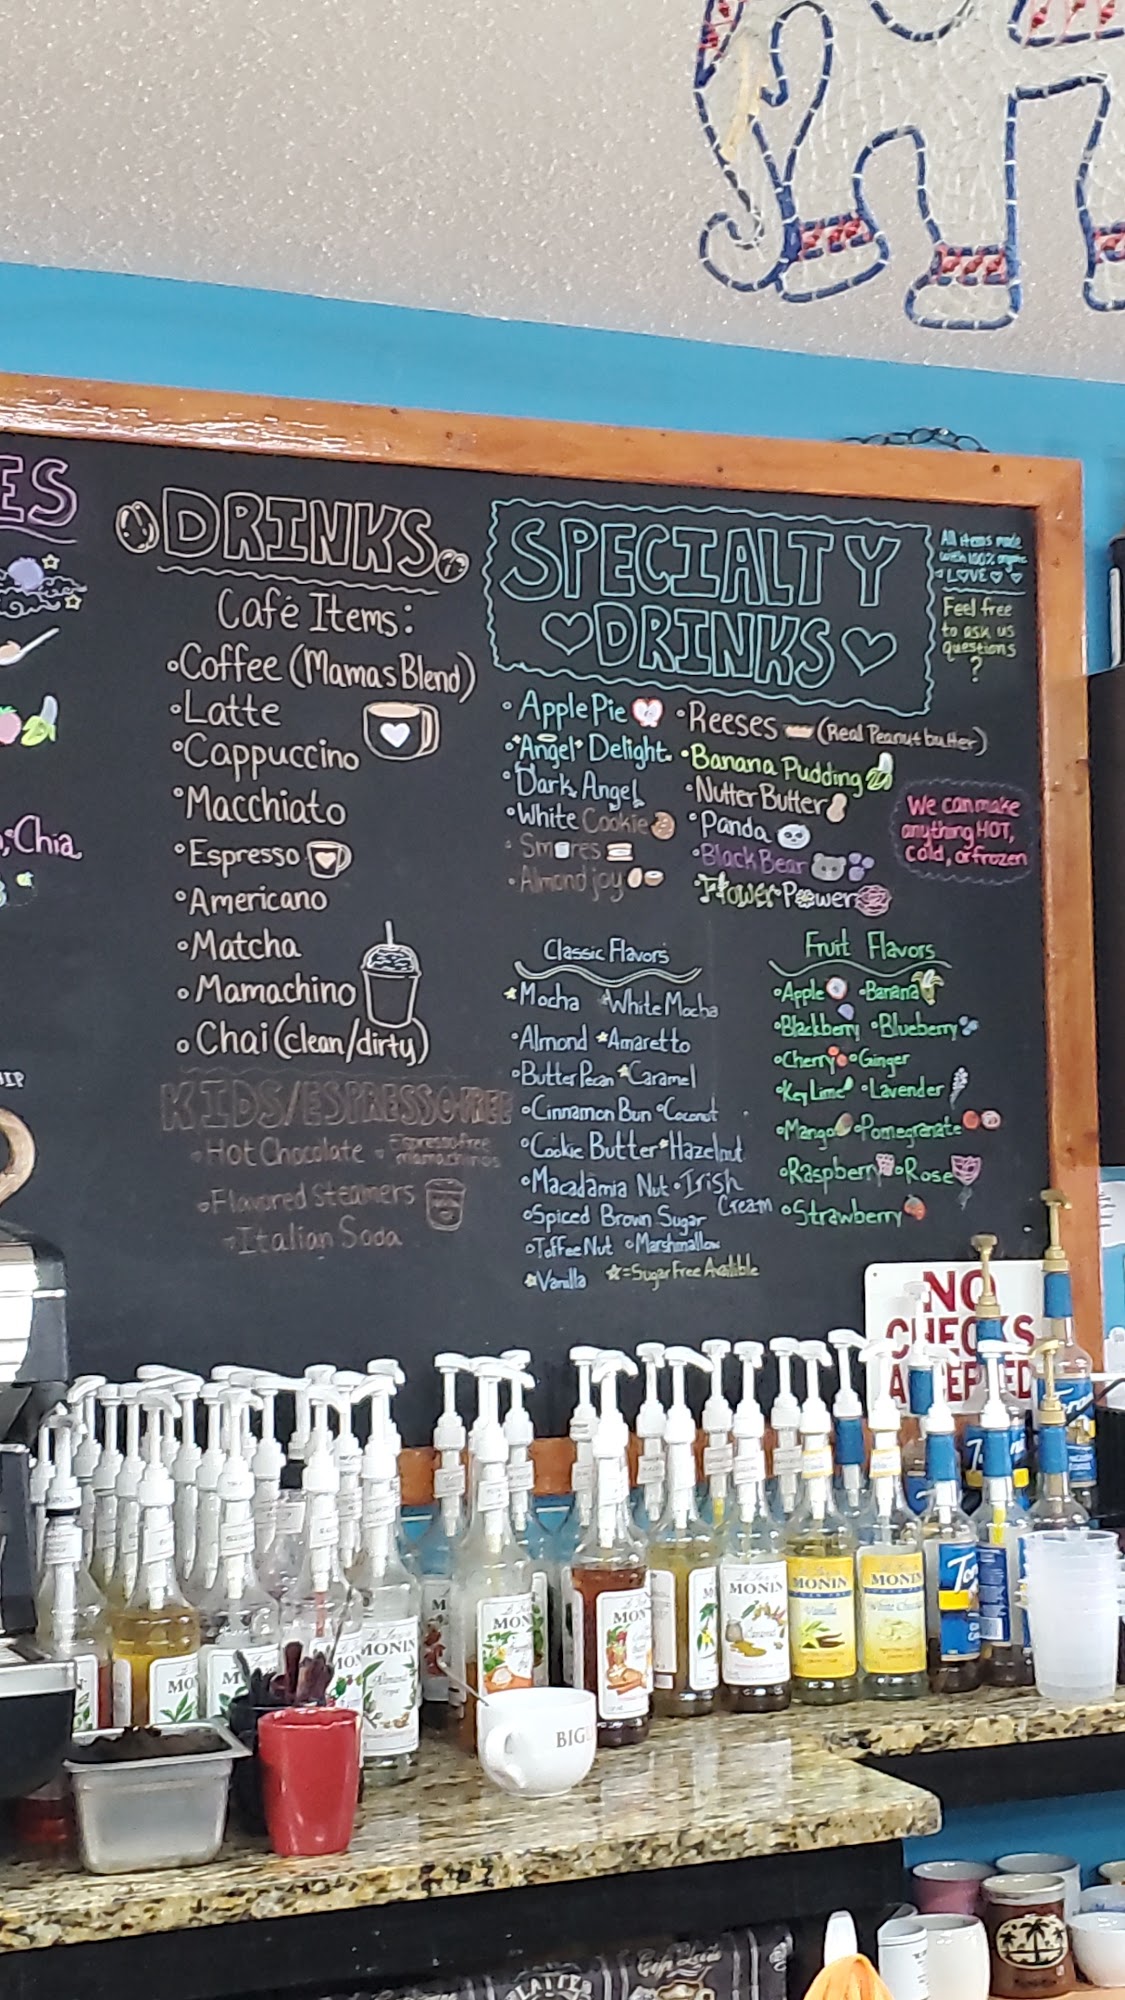 ES
Chia
DRINKS
Café Items:
Coffee (Mamas Blend)
Latte
Cappuccino
Macchiato
Espresso
Americano
Matcha
Mamachino
Chai (clean/dirty)
KIDS/ESPRESSO-FREE
Hot Chocolate Espresso free
mamachinos
Flavored Steamers
Italian Soda
SPECIALTY
DRINKS
Apple Pie
Angel Delight
Dark Angel
White Cookie
Smores
Almond joy
Reeses (Real Peanut butter)
Banana Pudding
Nutter Butter
Panda
Black Bear
Flower Power
All items made
with 100% organic
LOVE
Feel free
to ask us
questions
?
We can make
anything HOT,
Cold, or frozen
Classic Flavors
Mocha White Mocha
Almond Amaretto
Butter Pecan Caramel
Cinnamon Bun Coconut
Cookie Butter Hazelnut
Macadamia Nut Irish
Cream
Spiced Brown Sugar
Toffee Nut Marshmallow
Vanilla ☆=Sugar Free Availible
Fruit Flavors
Apple Banana
Blackberry Blueberry
Cherry Ginger
Key Lime Lavender
Mango Pomegranate
Raspberry Rose
Strawberry
NO
CHECKS
ACCEPTED
MONIN
Almond
MONIN
Caramel
MONIN
Vanilla
MONIN
BIG
LATTE